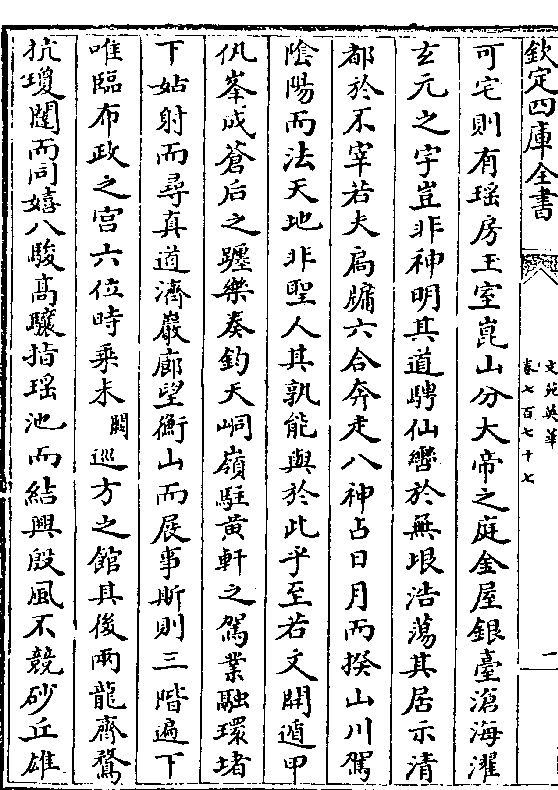 欽定四庫全書
文苑英華
卷七百七十七
一
可宅則有瑶房玉室崑山分大帝之庭金屋銀臺滄海濯
玄元之宇豈非神明其道騁仙轡於無垠浩蕩其居示清
都於不宰若夫扃牖六合奔走八神占日月而揆山川駕
陰陽而法天地非聖人其孰能與於此乎至若文開遁甲
仇峯成蒼后之躔樂奏鈞天峒嶺駐黄軒之駕業融環堵
下姑射而尋真道濟巖廊望衡山而展事斯則三階遍下
唯臨布政之宫六位時乗未闕巡方之館其後兩龍齊鶩
抗瓊闥而同嬉八駿髙驤指瑶池而結興殷風不競砂丘雄